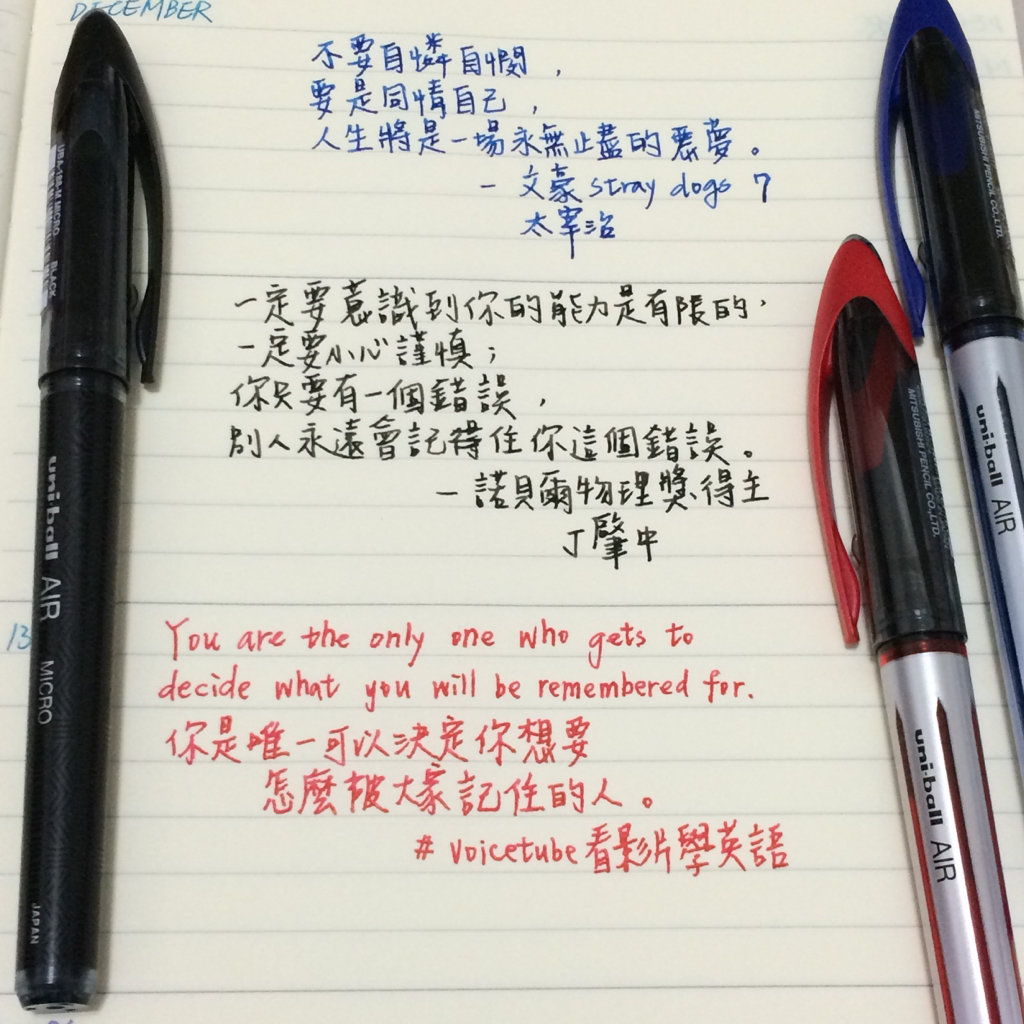 DECEMBER
不要自憐自憫，
要是同情自己，
人生將是一場永無止盡的惡夢。
－文豪 stray dogs 7
太宰治
一定要意識到你的能力是有限的，
一定要小心謹慎；
你只要有一個錯誤，
別人永遠會記得住你這個錯誤。
－諾貝爾物理獎得主
丁肇中
13
You are the only one who gets to
decide what you will be remembered for.
你是唯一可以決定你想要
怎麼被大家記住的人。
# voicetube看影片學英語
UBA-188-M MICRO BLACK
uni-ball AIR MICRO
JAPAN
MITSUBISHI PENCIL CO.,LTD.
uni-ball AIR
MITSUBISHI PENCIL CO.,LTD.
uni-ball AIR